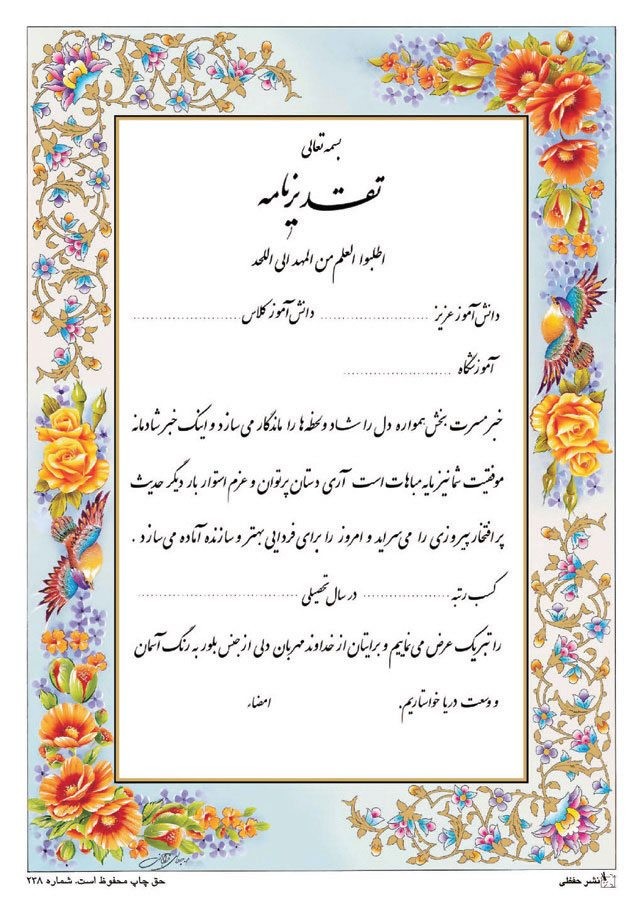 بسمه تعالی
تقدیرنامه
اطلبوا العلم من المهد الی اللحد
دانش‌آموز عزیز .......................... دانش‌آموز کلاس ..........................
آموزشگاه ..........................
خبر مسرت بخش همواره دل را شاد و لحظه‌ها را ماندگار می‌سازد و اینک خبر شادمانه
موفقیت شما نیز مایه مباهات است آری دستان پرتوان و عزم استوار بار دیگر حدیث
پر افتخار پیروزی را می‌سراید و امروز را برای فردایی بهتر و سازنده آماده می‌سازد .
کسب رتبه .......................... در سال تحصیلی ..........................
را تبریک عرض می‌نماییم و برایتان از خداوند مهربان دلی از جنس بلور به رنگ آسمان
و وسعت دریا خواستاریم. امضاء
نشر حفظی
حق چاپ محفوظ است. شماره ۲۳۸